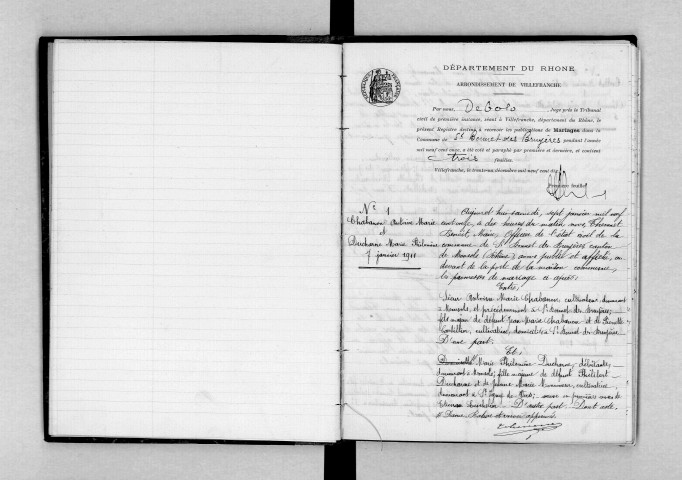 DÉPARTEMENT DU RHONE
ARRONDISSEMENT DE VILLEFRANCHE
Par nous, Juge près le Tribunal
civil de première instance, séant à Villefranche, département du Rhône, le
présent Registre destiné à recevoir les publications de Mariages dans la
Commune de St Bonnet des Bruyères pendant l'année
mil neuf cent onze, a été coté et paraphé par première et dernière, et contient
trois feuilles.
Villefranche, le trente-un décembre mil neuf cent dix.
Premier feuillet
No 1
Chabanon Antoine Marie
et
Ducharne Marie Philomène
7 janvier 1911
Aujourd'hui samedi, sept janvier mil neuf
cent onze, à dix heures du matin, nous,
Benoit Marie, Officier de l'état civil de la
commune de St Bonnet des Bruyères canton
de Monsols (Rhône), avons publié et affiché, au
devant de la porte de la maison commune,
la promesse de mariage ci après:
Entre:
Sieur Antoine Marie Chabanon, cultivateur, demeurant
à Monsols, et précédemment à St Bonnet des Bruyères,
fils majeur de défunt Jean Marie Chabanon et de
cultivatrice, domiciliée à St Bonnet des Bruyères
D'une part.
Et:
Marie Philomène Ducharne, débitante,
demeurant à Monsols, fille majeure de défunt Philibert
Ducharne et de Jeanne Marie cultivatrice
demeurant à St Igny de Vers; veuve en premières noces de
D'autre part. Dont acte.